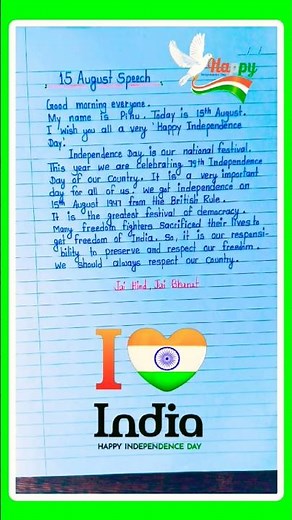 Ha·py
15 August Speech
Good morning everyone.
My name is Pihu. Today is 15th August.
I wish you all a very 'Happy Independence
Day.'
Independence Day is our national festival.
This year we are celebrating 79th Independence
Day of our Country. It is a very important
day for all of us. We got independence on
15th August 1947 from the British Rule.
It is the greatest festival of democracy.
Many freedom fighters Sacrificed their lives to
get freedom of India. So, it is our responsi-
bility to preserve and respect our freedom.
We should always respect our Country.
Jai Hind, Jai Bharat
I
India
HAPPY INDEPENDENCE DAY